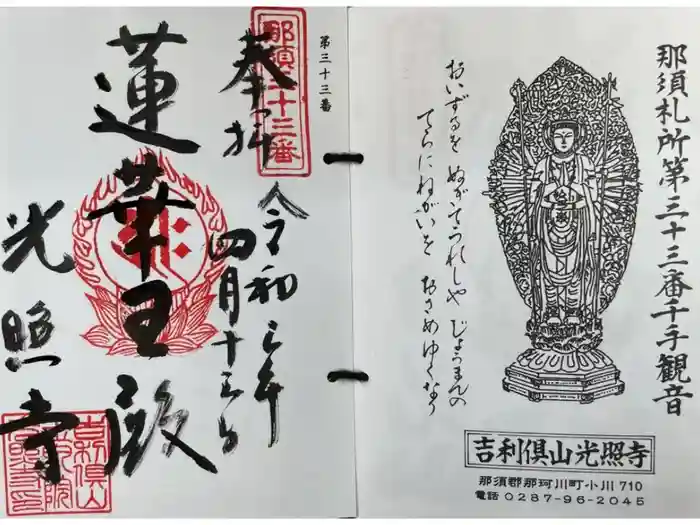 那須札所第三十三番千手観音
おいずるを ぬがてうれしや じょうまんの
てらにねがいを おさめゆくなり
吉利倶山光照寺
那須郡那珂川町小川710
電話0287-96-2045
第三十三番
那須三十三番
奉拝
令和三年
四月十三日
蓮華王殿
光照寺